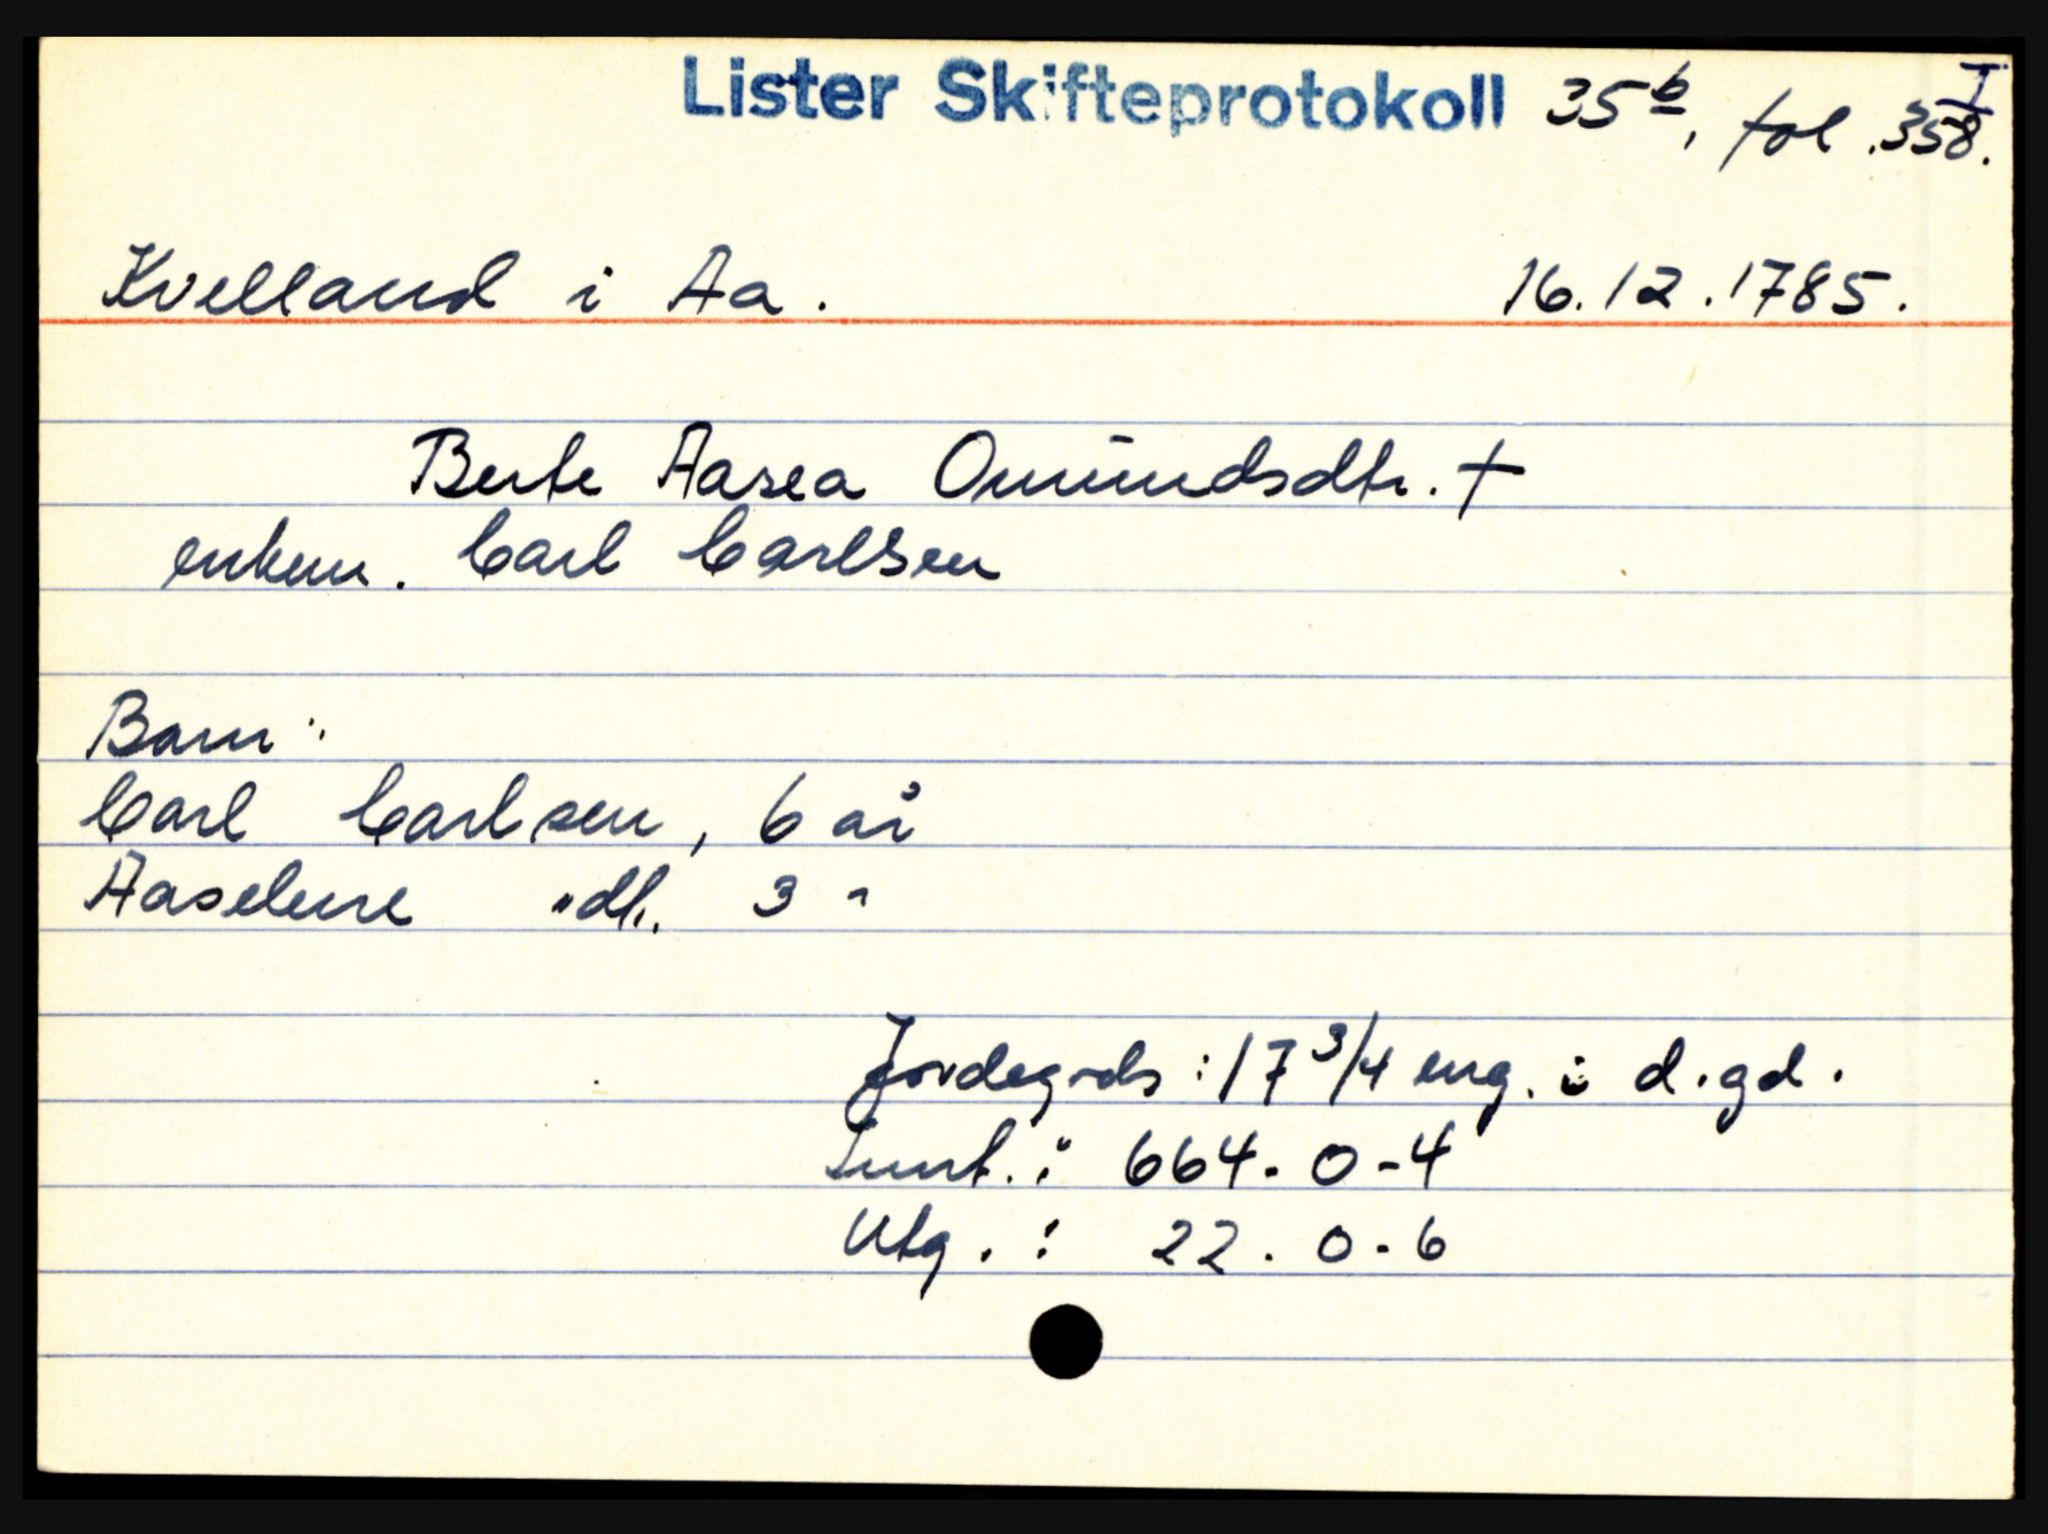 Lister Skifteprotokoll 35b, fol. 358. I
Kvelland i Aa. 16.12.1785.
Berte Aasea Omundsdtr. †
enkem. Carl Carlsen
Barn:
Carl Carlsen, 6 år
Aaselene "dt. 3 "
Jordegods: 17 3/4 eng. i d. gd.
Innt.: 664-0-4
Utg.: 22-0-6